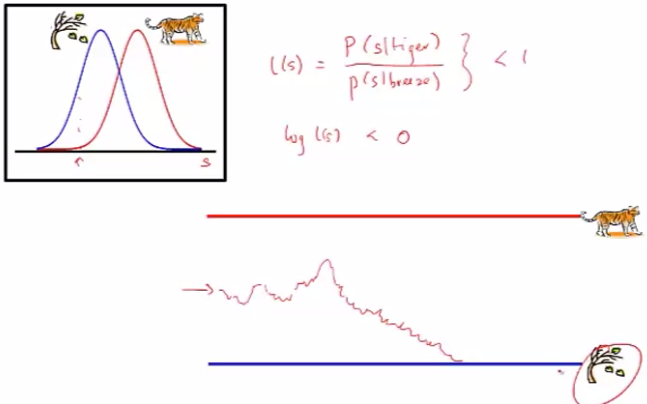 l(s) = P(s|tiger) / P(s|breeze) } < 1
log l(s) < 0
s